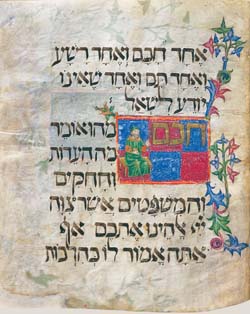 אחד חכם ואחד רשע
ואחד תם ואחד שאינו
יודע לשאל
חכם מה הוא אומר
מה העדות
והחקים
והמשפטים אשר צוה
ייי אלהינו אתכם אף
אתה אמור לו כהלכות